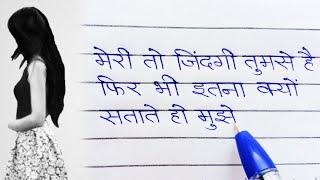 मेरी तो जिंदगी तुमसे है
फिर भी इतना क्यों
सताते हो मुझे